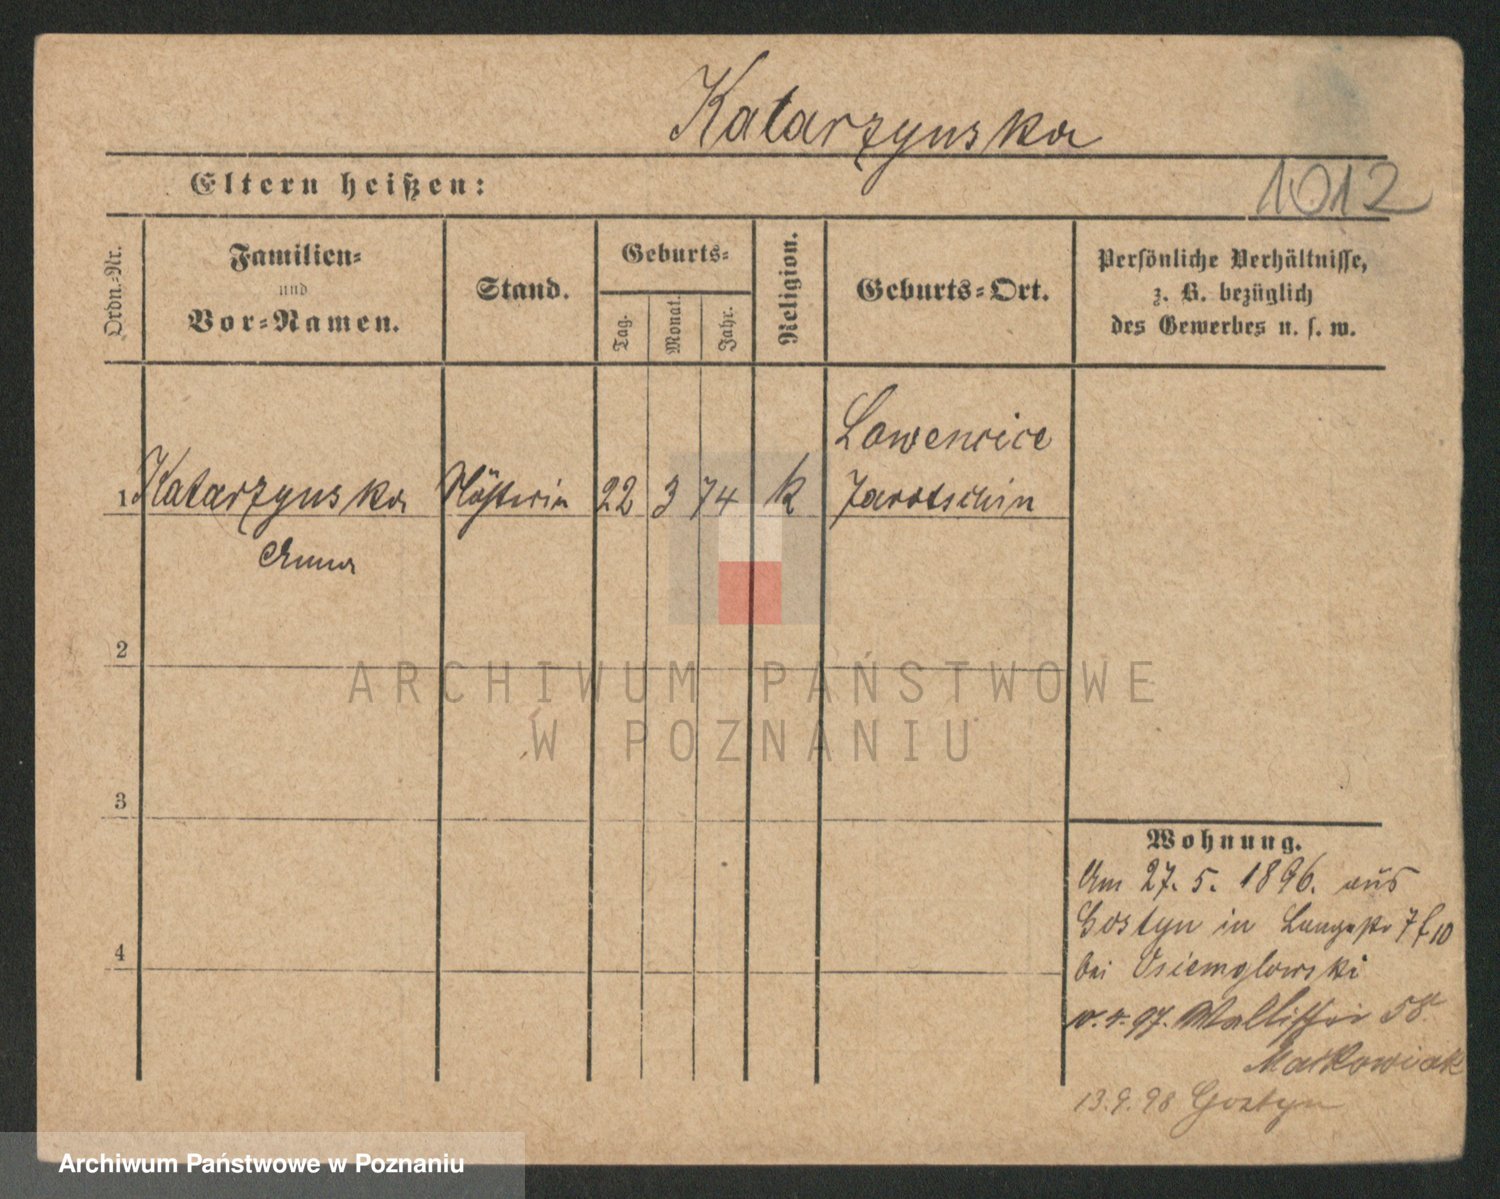 Katarzynska
Eltern heißen:
1012
Ordn.-Nr.
Familien-
und
Vor-Namen.
Stand.
Geburts-
Tag.
Monat.
Jahr.
Religion.
Geburts-Ort.
Persönliche Verhältnisse,
z. B. bezüglich
des Gewerbes u. s. w.
Lowencice
1 Katarzynska 22 3 74 k Jarotschin
Anna
2
3
4
ARCHIWUM PAŃSTWOWE
W POZNANIU
Wohnung.
Am 27. 5. 1896. aus
Gostyn in Langestr 7 f 10
bei Osiemglowski
4. 97. Wallischei 58
Matkowiak
13. 9. 98 Gostyn
Archiwum Państwowe w Poznaniu